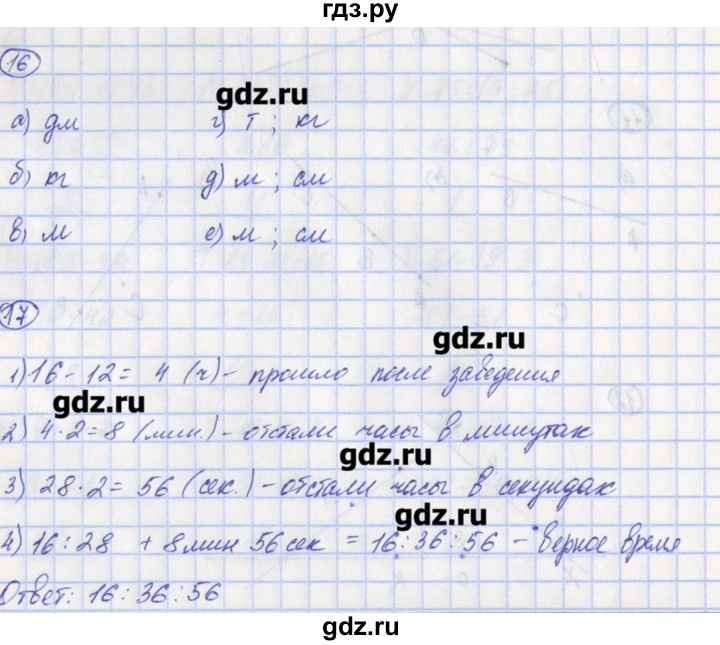 гдз.ру
16
gdz.ru
а) дм г) т ; кг
б) кг д) м ; см
в) м е) м ; см
17
gdz.ru
1) 16 - 12 = 4 (ч) - прошло после заведения
gdz.ru
2) 4 · 2 = 8 (мин.) - отстали часы в минутах
gdz.ru
3) 28 · 2 = 56 (сек.) - отстали часы в секундах
gdz.ru
4) 16 : 28 + 8 мин 56 сек = 16 : 36 : 56 - верное время
Ответ: 16 : 36 : 56
gdz.ru